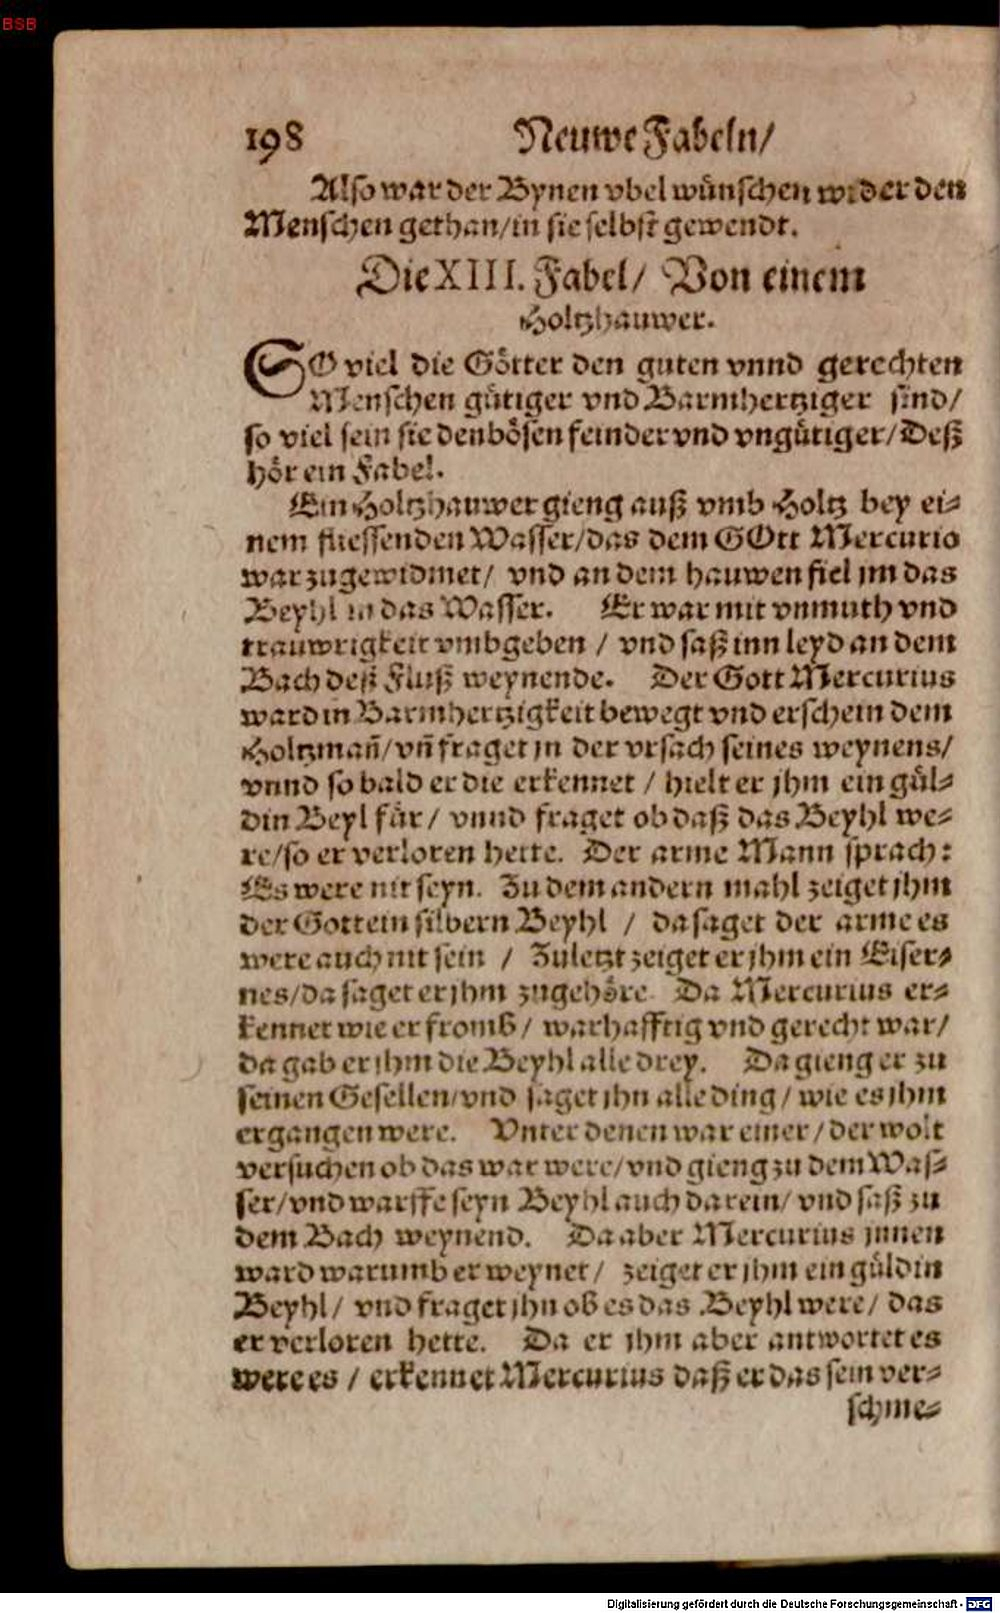 BSB
198 Neuwe Fabeln/
Also war der Bynen vbel wünschen wider den
Menschen gethan/in sie selbst gewendt.
Die XIII. Fabel/ Von einem
Holtzhauwer.
SO viel die Götter den guten vnnd gerechten
Menschen gütiger vnd Barmhertziger sind/
so viel sein sie den bösen feinder vnd vngütiger/Deß
hör ein Fabel.
Ein Holtzhauwer gieng auß vmb Holtz bey ei⸗
nem fliessenden Wasser/das dem GOtt Mercurio
war zugewidmet/ vnd an dem hauwen fiel jm das
Beyhl in das Wasser. Er war mit vnmuth vnd
trauwrigkeit vmbgeben / vnd saß inn leyd an dem
Bach deß Fluß weynende. Der Gott Mercurius
ward in Barmhertzigkeit bewegt vnd erschein dem
Holtzmañ/vñ fraget jn der vrsach seines weynens/
vnnd so bald er die erkennet / hielt er jhm ein gül⸗
din Beyl für/ vnnd fraget ob daß das Beyhl we⸗
re/so er verloren hette. Der arme Mann sprach:
Es were nit seyn. Zu dem andern mahl zeiget jhm
der Gott ein silbern Beyhl / da saget der arme es
were auch nit sein / Zuletzt zeiget er jhm ein Eiser⸗
nes/da saget er jhm zugehöre. Da Mercurius er⸗
kennet wie er fromb/ warhafftig vnd gerecht war/
da gab er jhm die Beyhl alle drey. Da gieng er zu
seinen Gesellen/vnd saget jhn alle ding/ wie es jhm
ergangen were. Vnter denen war einer/der wolt
versuchen ob das war were/vnd gieng zu dem Was⸗
ser/vnd warffe seyn Beyhl auch darein/ vnd saß zu
dem Bach weynend. Da aber Mercurius jnnen
ward warumb er weynet/ zeiget er jhm ein güldin
Beyhl/ vnd fraget jhn ob es das Beyhl were/ das
er verloren hette. Da er jhm aber antwortet es
were es / erkennet Mercurius daß er das sein ver⸗
schme⸗
Digitalisierung gefördert durch die Deutsche Forschungsgemeinschaft - DFG